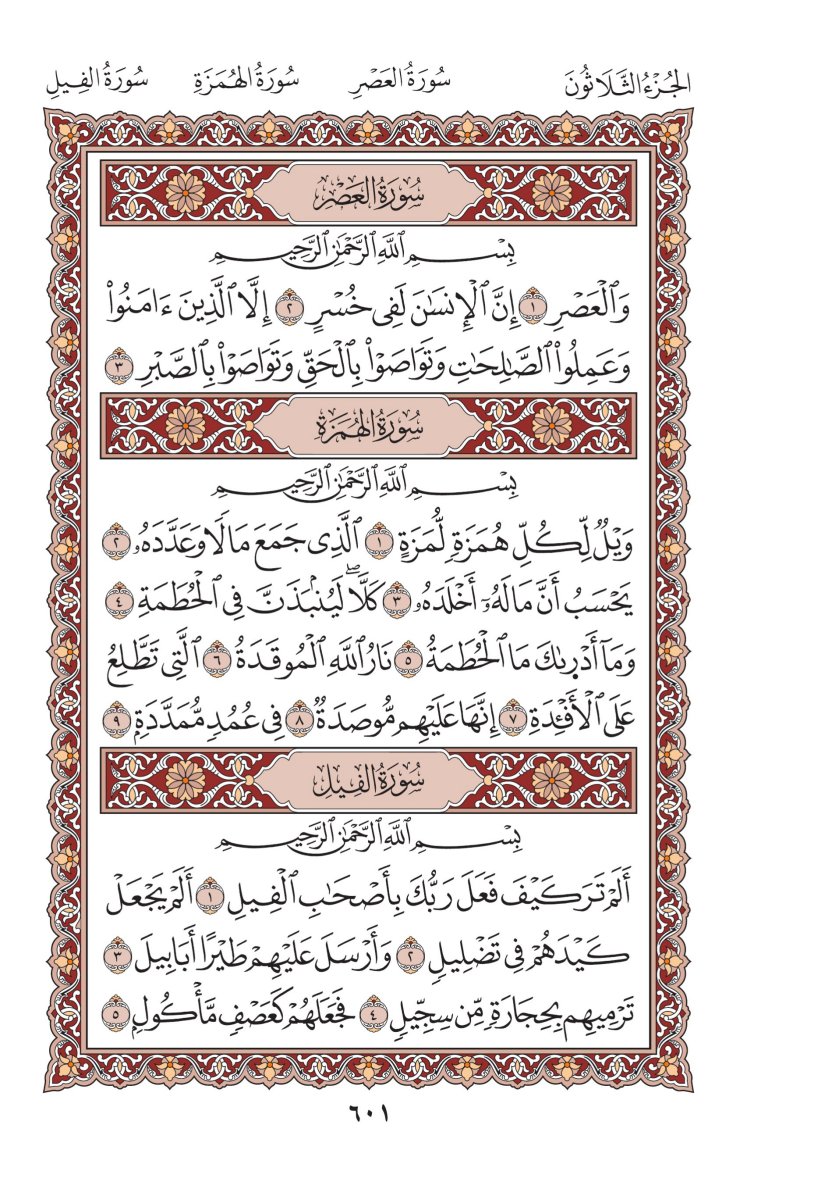 الجُزْءُ الثَّلَاثُونَ سُورَةُ العَصْرِ سُورَةُ الهُمَزَةِ سُورَةُ الفِيلِ
سُورَةُ العَصْرِ
بِسْمِ ٱللَّهِ ٱلرَّحْمَٰنِ ٱلرَّحِيمِ
وَٱلْعَصْرِ ١ إِنَّ ٱلْإِنسَٰنَ لَفِى خُسْرٍ ٢ إِلَّا ٱلَّذِينَ ءَامَنُوا۟
وَعَمِلُوا۟ ٱلصَّٰلِحَٰتِ وَتَوَاصَوْا۟ بِٱلْحَقِّ وَتَوَاصَوْا۟ بِٱلصَّبْرِ ٣
سُورَةُ الهُمَزَةِ
بِسْمِ ٱللَّهِ ٱلرَّحْمَٰنِ ٱلرَّحِيمِ
وَيْلٌ لِّكُلِّ هُمَزَةٍ لُّمَزَةٍ ١ ٱلَّذِى جَمَعَ مَالًا وَعَدَّدَهُۥ ٢
يَحْسَبُ أَنَّ مَالَهُۥٓ أَخْلَدَهُۥ ٣ كَلَّا ۖ لَيُنۢبَذَنَّ فِى ٱلْحُطَمَةِ ٤
وَمَآ أَدْرَىٰكَ مَا ٱلْحُطَمَةُ ٥ نَارُ ٱللَّهِ ٱلْمُوقَدَةُ ٦ ٱلَّتِى تَطَّلِعُ
عَلَى ٱلْأَفْـِٔدَةِ ٧ إِنَّهَا عَلَيْهِم مُّوصَدَةٌ ٨ فِى عَمَدٍ مُّمَدَّدَةٍۭ ٩
سُورَةُ الفِيلِ
بِسْمِ ٱللَّهِ ٱلرَّحْمَٰنِ ٱلرَّحِيمِ
أَلَمْ تَرَ كَيْفَ فَعَلَ رَبُّكَ بِأَصْحَٰبِ ٱلْفِيلِ ١ أَلَمْ يَجْعَلْ
كَيْدَهُمْ فِى تَضْلِيلٍ ٢ وَأَرْسَلَ عَلَيْهِمْ طَيْرًا أَبَابِيلَ ٣
تَرْمِيهِم بِحِجَارَةٍ مِّن سِجِّيلٍ ٤ فَجَعَلَهُمْ كَعَصْفٍ مَّأْكُولٍۭ ٥
٦٠١